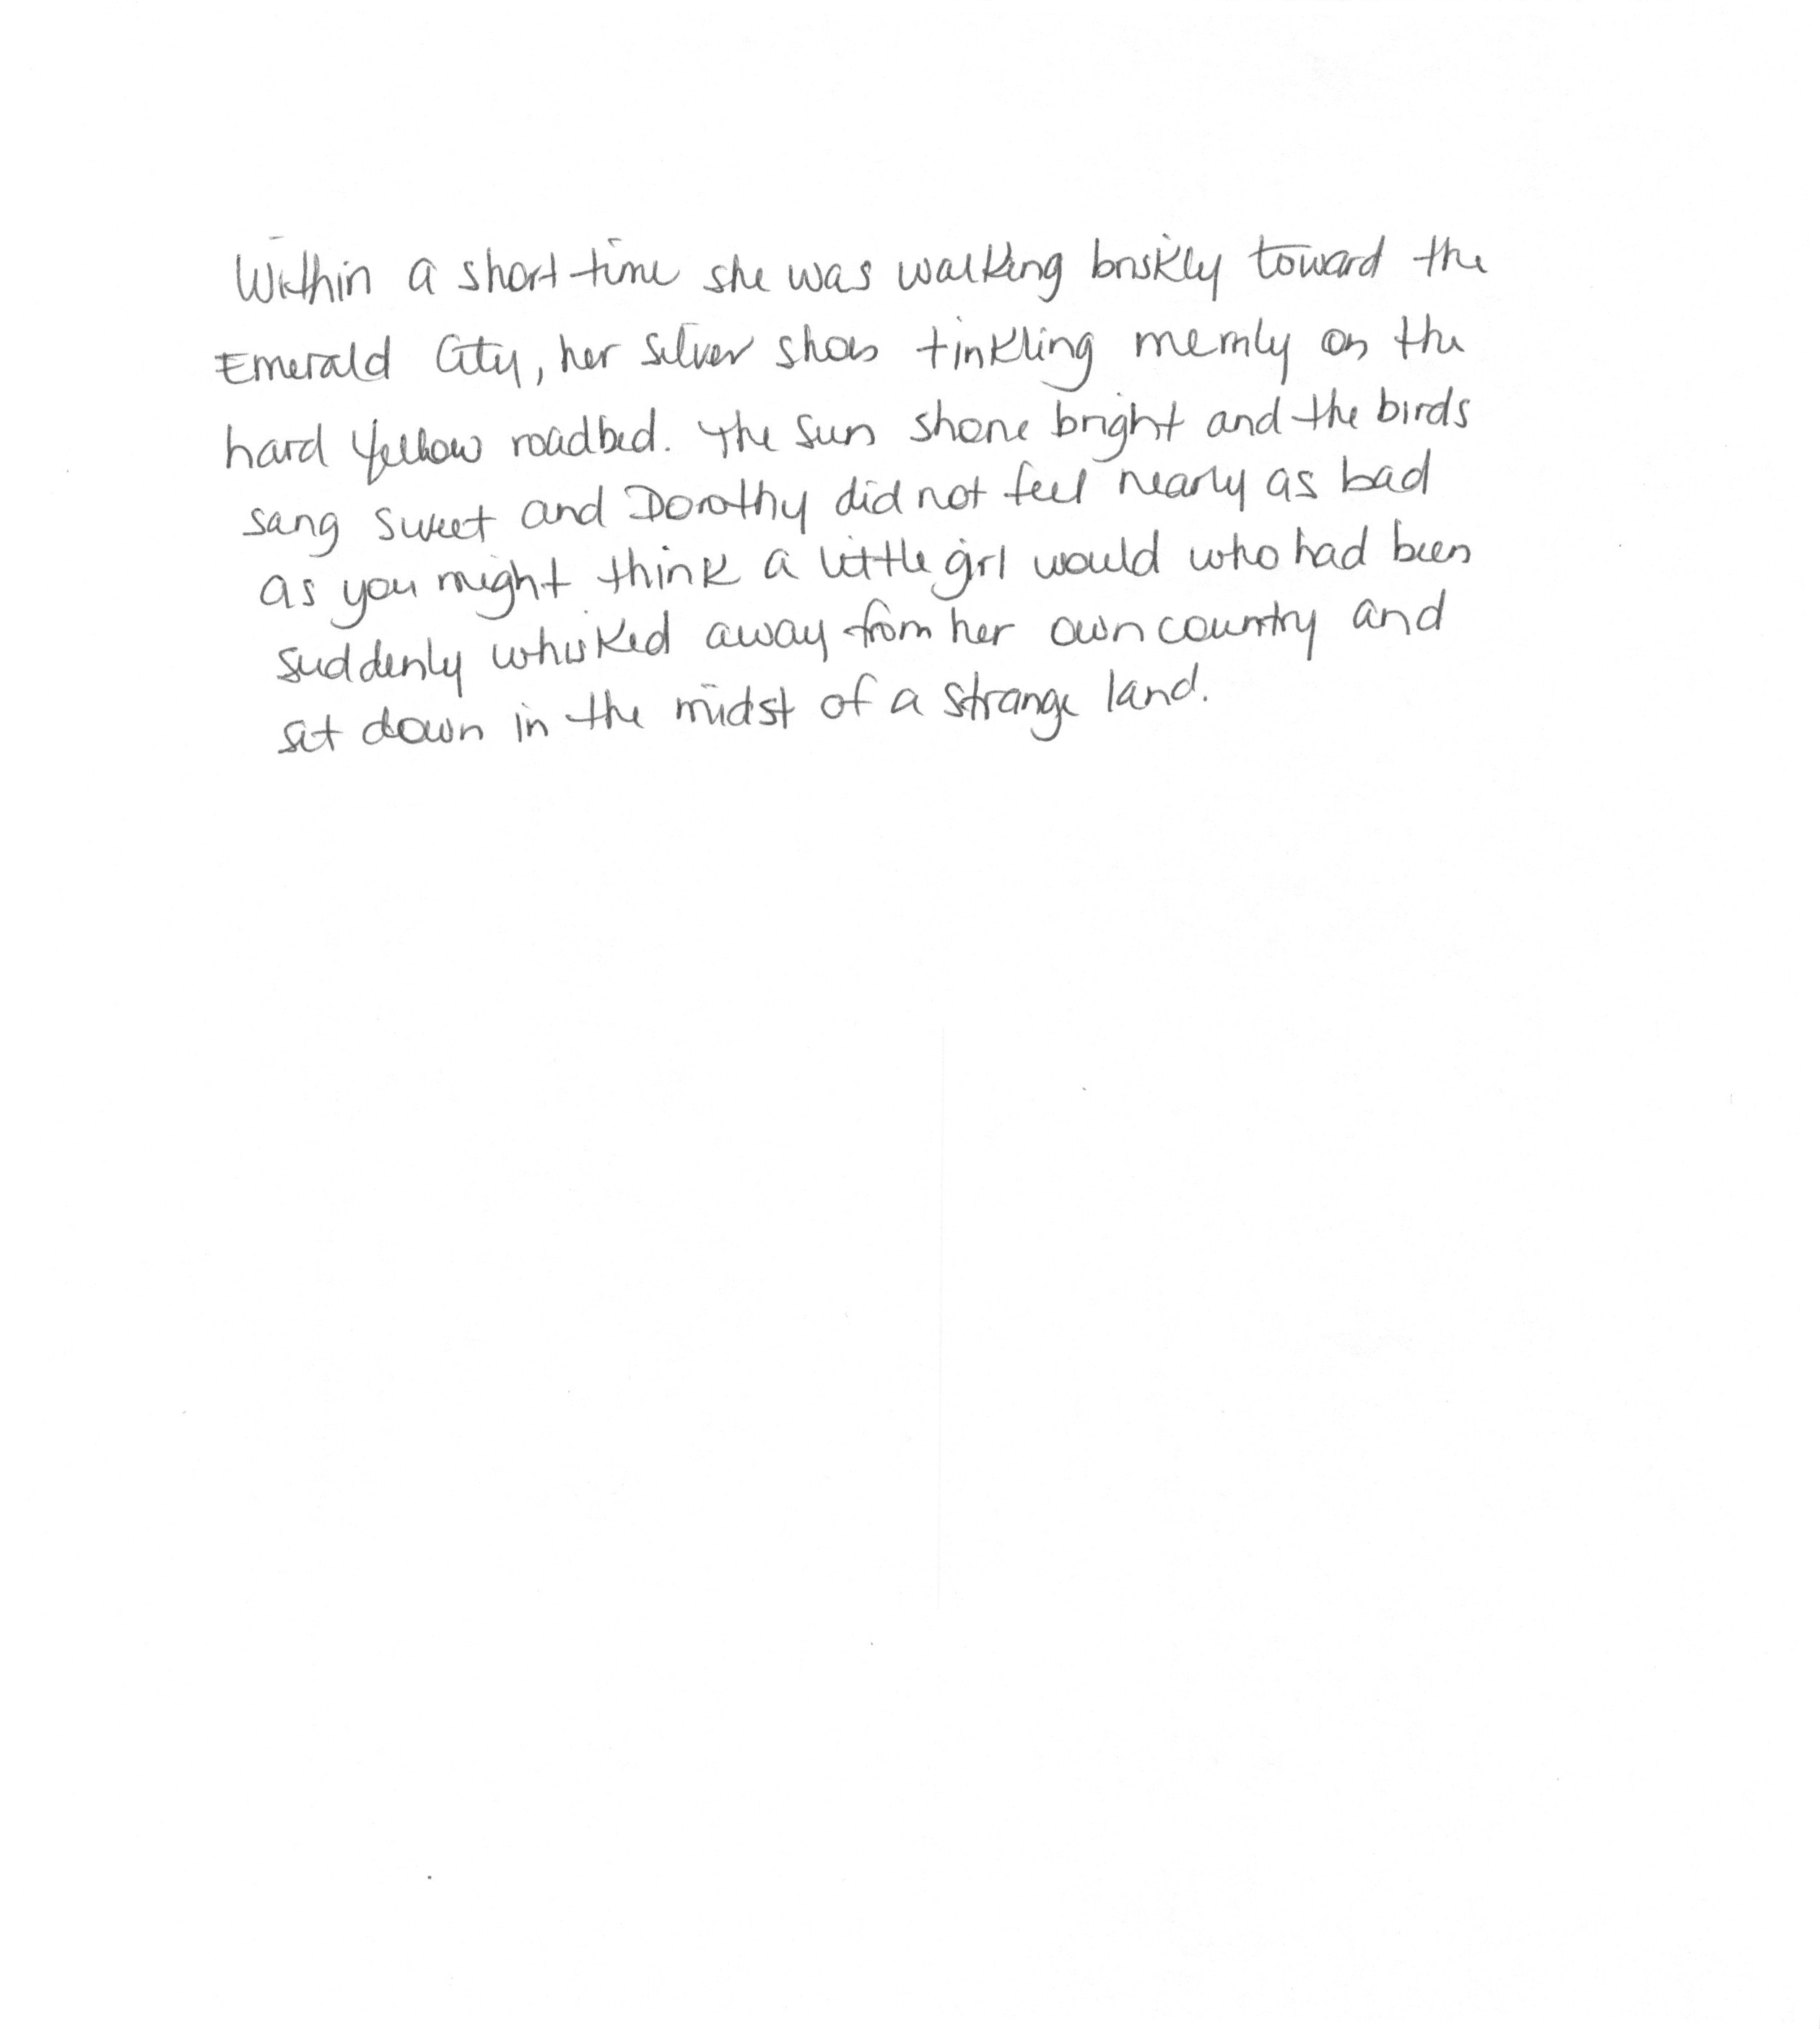 Within a short time she was walking briskly toward the
Emerald City, her silver shoes tinkling merrily on the
hard yellow roadbed. The sun shone bright and the birds
sang sweet and Dorothy did not feel nearly as bad
as you might think a little girl would who had been
suddenly whisked away from her own country and
set down in the midst of a strange land.